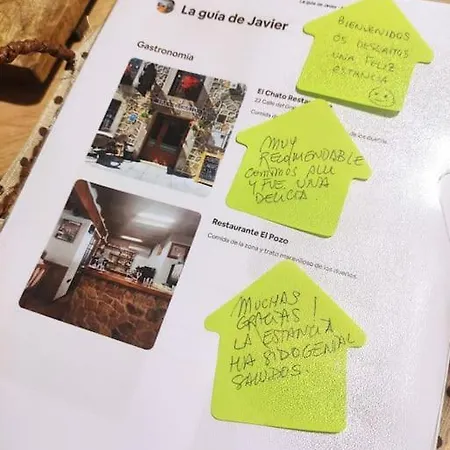 La guía de Javier
La guía de Javier
Gastronomía
BIENVENIDOS
OS DESEAMOS
UNA FELIZ
ESTANCIA
El Chato Restau
22 Calle del
Comida de
MUY
RECOMENDABLE
COMIMOS ALLI
Y FUE UNA
DELICIA.
Restaurante El Pozo
Comida de la zona y trato maravilloso de los dueños.
MUCHAS
GRACIAS!
LA ESTANCIA
HA SIDO GENIAL
SALUDOS.